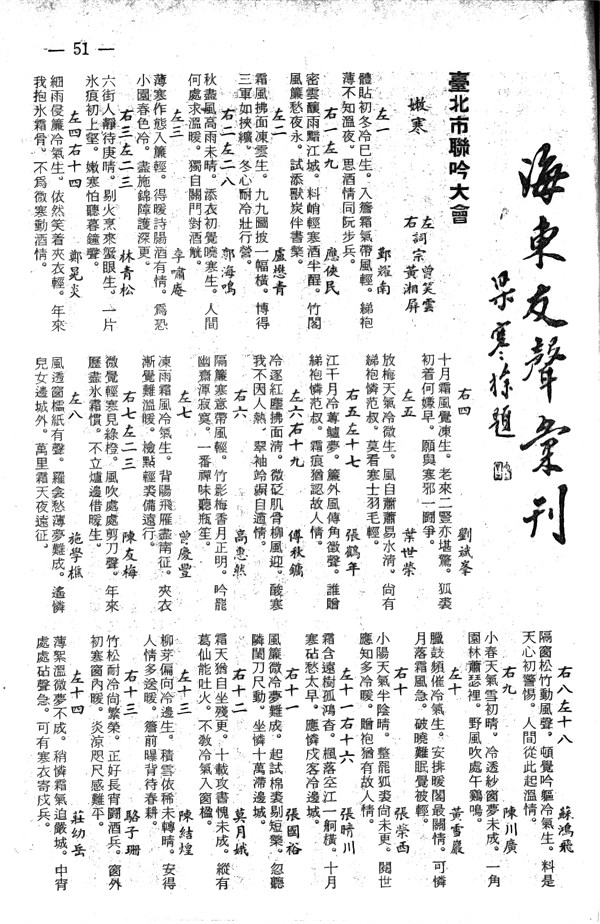 — 51 —
海東友聲彙刊
吳寒徐題
臺北市聯吟大會
嫩寒
左詞宗曾笑雲
右　　黃湘屏
左一　鄭雍南
體貼初冬冷已生。入簷霜氣帶風輕。綈袍
薄不知溫夜。思酒情同阮步兵。
右一左九　應俠民
密雲釀雨黯江城。料峭輕寒酒半醒。竹閣
風簾愁夜永。試添獸炭伴書檠。
左二　盧懋青
霜風拂面凍雲生。九九圖披一幅橫。博得
三軍如挾纊。冬心耐冷壯行營。
右二左二八　郭海鳴
秋盡風高雨未晴。添衣初覺曉寒生。人間
何處求溫暖。獨自關門對酒觥。
左三　李嘯庵
薄寒作態入簾輕。得暖詩腸酒有情。爲恐
小園春色冷。盡施錦障護深更。
右三左二三　林青松
六街人靜待庚晴。剔火烹來蟹眼生。一片
氷痕初上壑。嫩寒怕聽暮鐘聲。
左四右十四　鄭晃炎
細雨侵簾冷氣生。依然笑着夾衣輕。年來
我抱氷霜骨。不爲微寒動酒情。
右四　劉斌峯
十月霜風覺凍生。老來二豎亦堪驚。狐裘
初着何嫌早。願與寒邪一鬪爭。
左五　葉世榮
放梅天氣冷微生。風自蕭蕭易水淸。尙有
綈袍憐范叔。莫看寒士羽毛輕。
右五左十七　張鶴年
江干月冷蓴鱸夢。簾外風傳角徵聲。誰贈
綈袍憐范叔。霜痕猶認故人情。
左六右十九　傅秋鏞
冷逐紅塵拂面淸。微砭肌骨柳風迎。酸寒
我不因人熱。翠袖吟銅自適情。
右六　高惠然
隔簾寒意帶風輕。竹影梅香月正明。吟罷
幽齋渾寂寞。一番禪味聽瓶笙。
左七　曾慶豐
凍雨霜風冷氣生。背陽飛雁盡南征。夾衣
漸覺難溫暖。檢點輕裘備遠行。
右七左二三　陳友梅
微覺輕寒見綠橙。風吹處處剪刀聲。年來
歷盡氷霜慣。不立爐邊借暖生。
左八　施學樵
風透窗櫺紙有聲。羅衾愁薄夢難成。遙憐
兒女邊城外。萬里霜天夜遠征。
右八左十八　蘇鴻飛
隔窗松竹動風聲。頓覺吟軀冷氣生。料是
天心初警惕。人間從此起溫情。
右九　陳川廣
小春天氣雪初晴。冷透紗窗夢未成。一角
園林蕭瑟裡。野風吹處午鷄鳴。
左十　黃雪巖
臘鼓頻催冷氣生。安排暖閣最關情。可憐
月落霜風急。破曉難眠覺被輕。
右十　張榮西
小陽天氣半陰晴。整罷狐裘尙未更。閱世
應知多冷暖。贈袍猶有故人情。
左十一右十六　張晴川
霜含遠樹孤鴻杳。楓落空江一舸橫。十月
寒砧愁太早。應憐戍客冷邊城。
右十一　張國裕
風簾微冷夢難成。起試棉裘剔短檠。忽聽
隣閨刀尺動。坐憐十萬滯邊城。
右十二　莫月娥
霜天猶自坐殘更。十載攻書愧未成。縱有
葛仙能吐火。不敎冷氣入窗櫺。
左十三　陳結煌
柳芽偏向冷邊生。積雪依稀未轉晴。安得
人情多送暖。簷前曝背待春耕。
右十三　駱子珊
竹松耐冷尙繁榮。正好長宵鬪酒兵。窗外
初寒窗內暖。炎涼咫尺感難平。
左十四　莊幼岳
薄絮溫微夢不成。稍憐霜氣迫嚴城。中宵
處處砧聲急。可有寒衣寄戍兵。